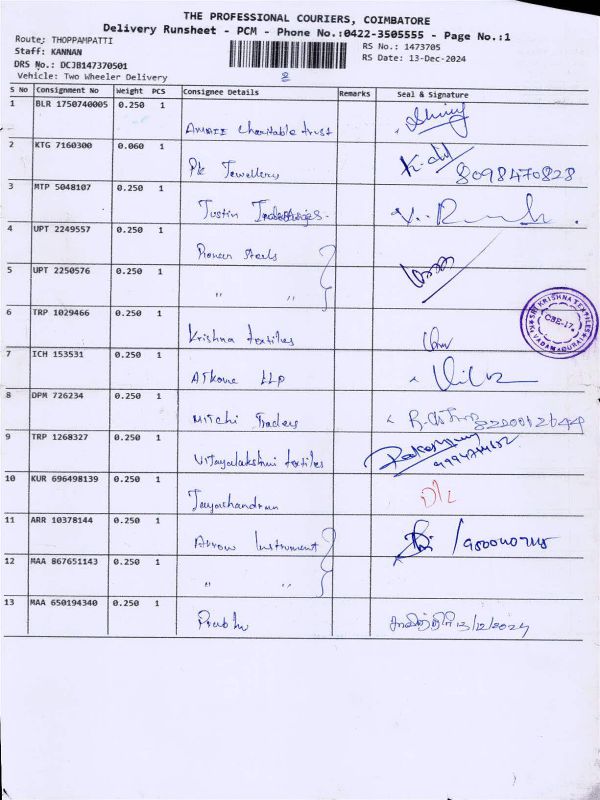 THE PROFESSIONAL COURIERS, COIMBATORE
Delivery Runsheet - PCM - Phone No.:0422-3505555 - Page No.:1
Route: THOPPAMPATTI RS No.: 1473705
Staff: KANNAN RS Date: 13-Dec-2024
DRS No.: DCJB147370501
Vehicle: Two Wheeler Delivery
S No Consignment No Weight PCS Consignee Details Remarks Seal & Signature
1 BLR 1750740005 0.250 1
Charitable trust
2 KTG 7160300 0.060 1
PK Jewellers 8098470828
3 MTP 5048107 0.250 1
Justin
4 UPT 2249557 0.250 1
Pioneer Steels
5 UPT 2250576 0.250 1
" "
SRI KRISHNA TEXTILES
CBE-17.
VADAMADURAI
6 TRP 1029466 0.250 1
Krishna textiles
7 ICH 153531 0.250 1
LLP
8 DPM 726234 0.250 1
Mitchi Traders
9 TRP 1268327 0.250 1
Vijayalakshmi textiles
10 KUR 696498139 0.250 1
Jayachandran D/L
11 ARR 10378144 0.250 1
Arrow Instrument
12 MAA 867651143 0.250 1
" "
13 MAA 650194340 0.250 1
Prabhu 13/12/2024